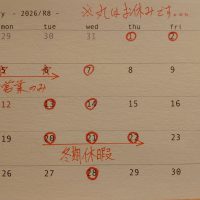 y - 2026/R8 - ※丸はお休みです...
mon tue wed thu fri
29 30 31 1 2
5 6 7 8 9
営業のみ
12 13 14 15 16
19 20 21 22 23
冬期休暇
26 27 28 29 30